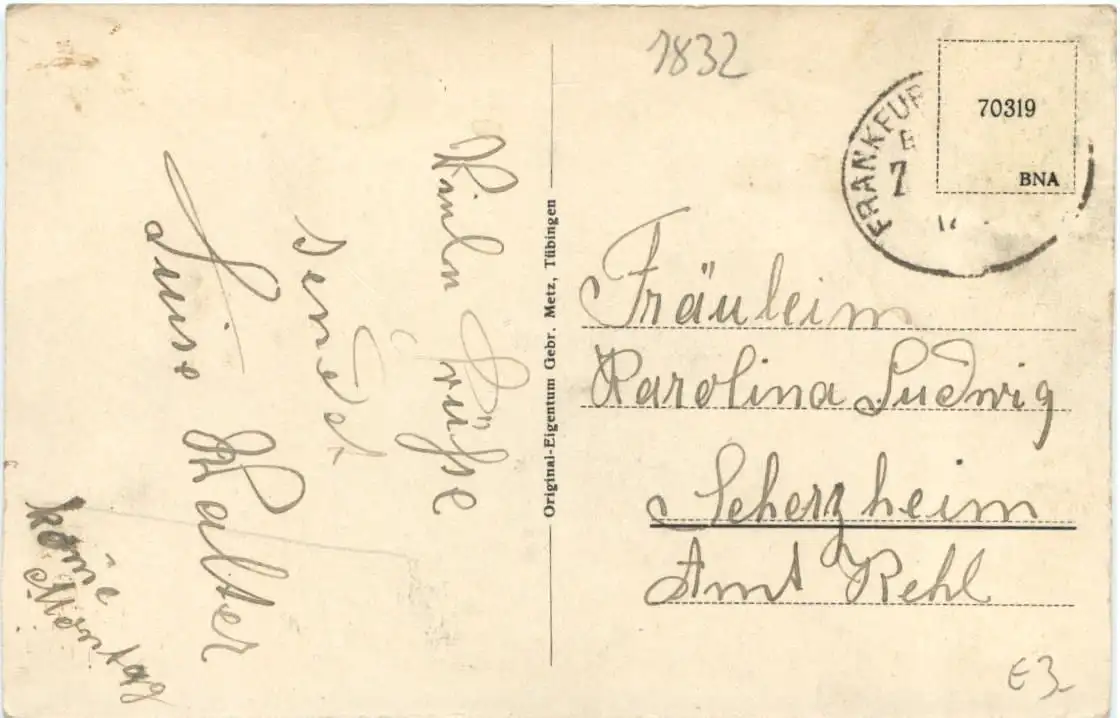 Viele Grüße
sendet
Luise Walter
kom̄e
Montag
Original-Eigentum Gebr. Metz, Tübingen
1832
FRANKFUR
7
70319
BNA
Fräulein
Karolina Ludwig
Scherzheim
Amt Kehl
E3.-